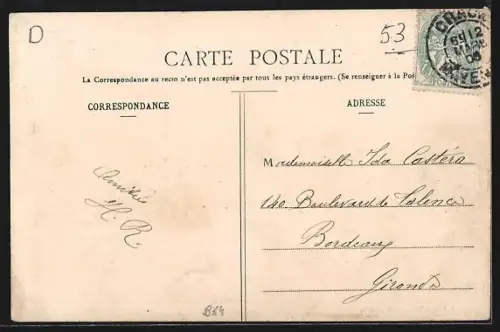 D
53
CARTE POSTALE
La Correspondance au recto n'est pas acceptée par tous les pays étrangers. (Se renseigner à la Pos
CORRESPONDANCE
ADRESSE
CRAON
12
MAYENNE
Mademoiselle Ida Castéra
140 Boulevard de Talence
Bordeaux
Gironde
Amitiés
H. R.
B54